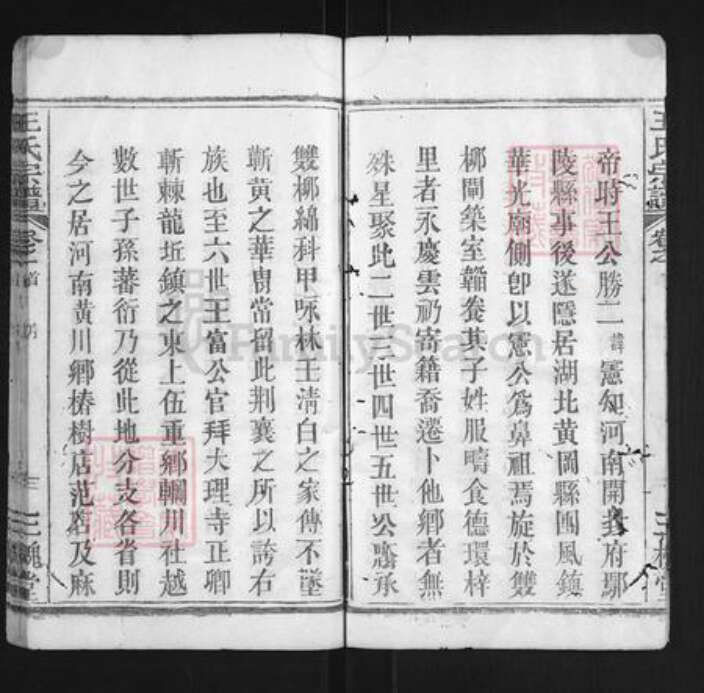 帝時王公勝二諱憲知河南開封府鄢
陵縣事後遂隱居湖北黄岡縣團風鎮
華光廟側卽以憲公爲鼻祖焉旋於雙
柳閘築室韜養其子姓服疇食德環梓
里者永慶雲礽寄籍喬遷卜他鄉者無
殊星聚此二世三世四世五世公
承
雙柳綿科甲咏林王清白之家傳不墜
蘄黄之華胄常留此荆襄之所以誇右
族也至六世王富公官拜大理寺正卿
斬棘龍坵鎮之東上伍重鄉輞川社越
數世子孫蕃衍乃從此地分支各省則
今之居河南黄川鄉椿樹店范店及麻
王氏宗譜
卷之
三槐堂
王氏宗譜
卷之首
三槐堂
FamilySearch